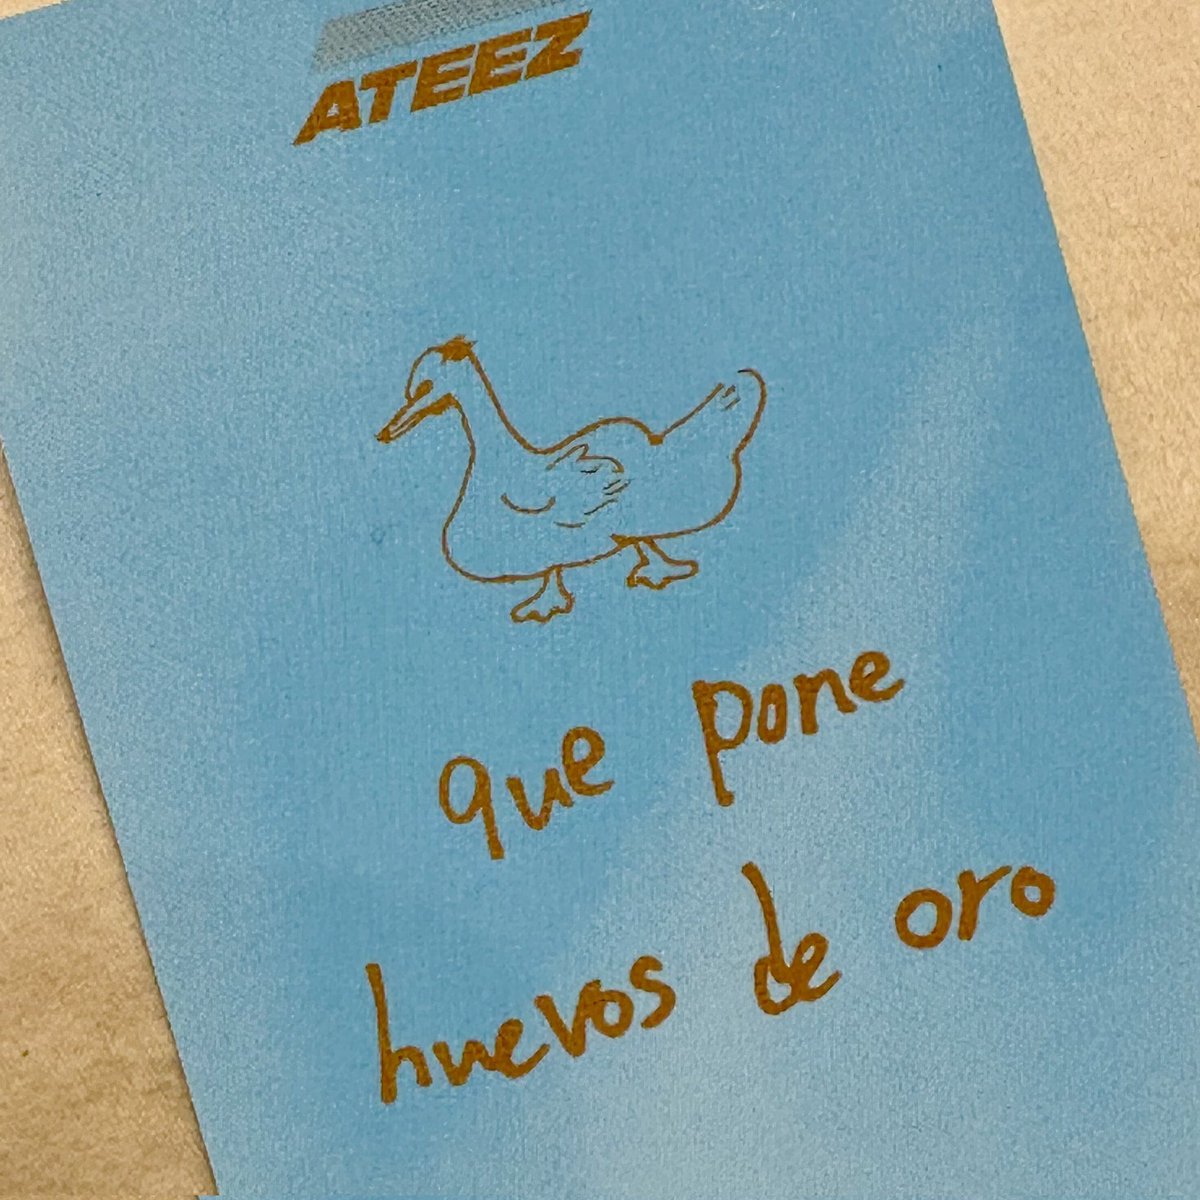 ATEEZ
que pone
huevos de oro